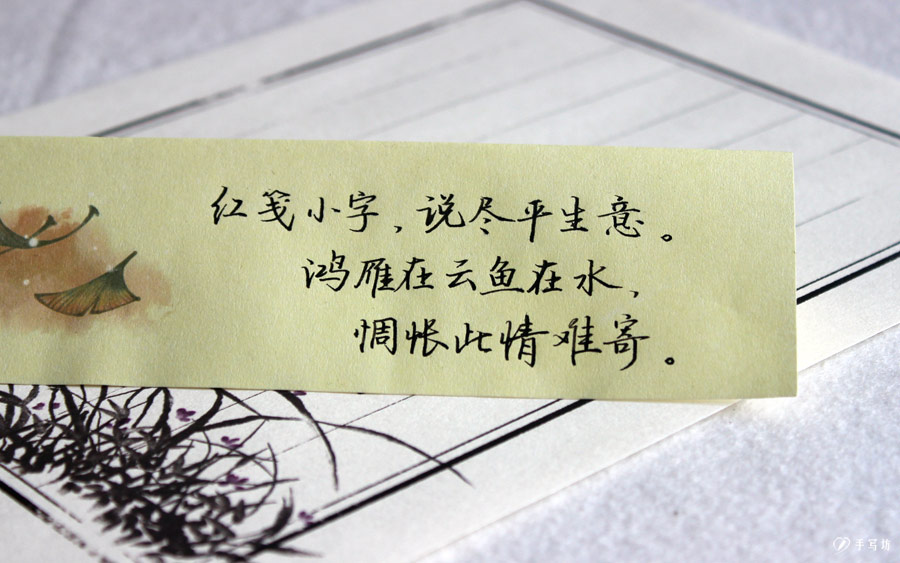 红笺小字，说尽平生意。
鸿雁在云鱼在水，
惆怅此情难寄。
手写坊